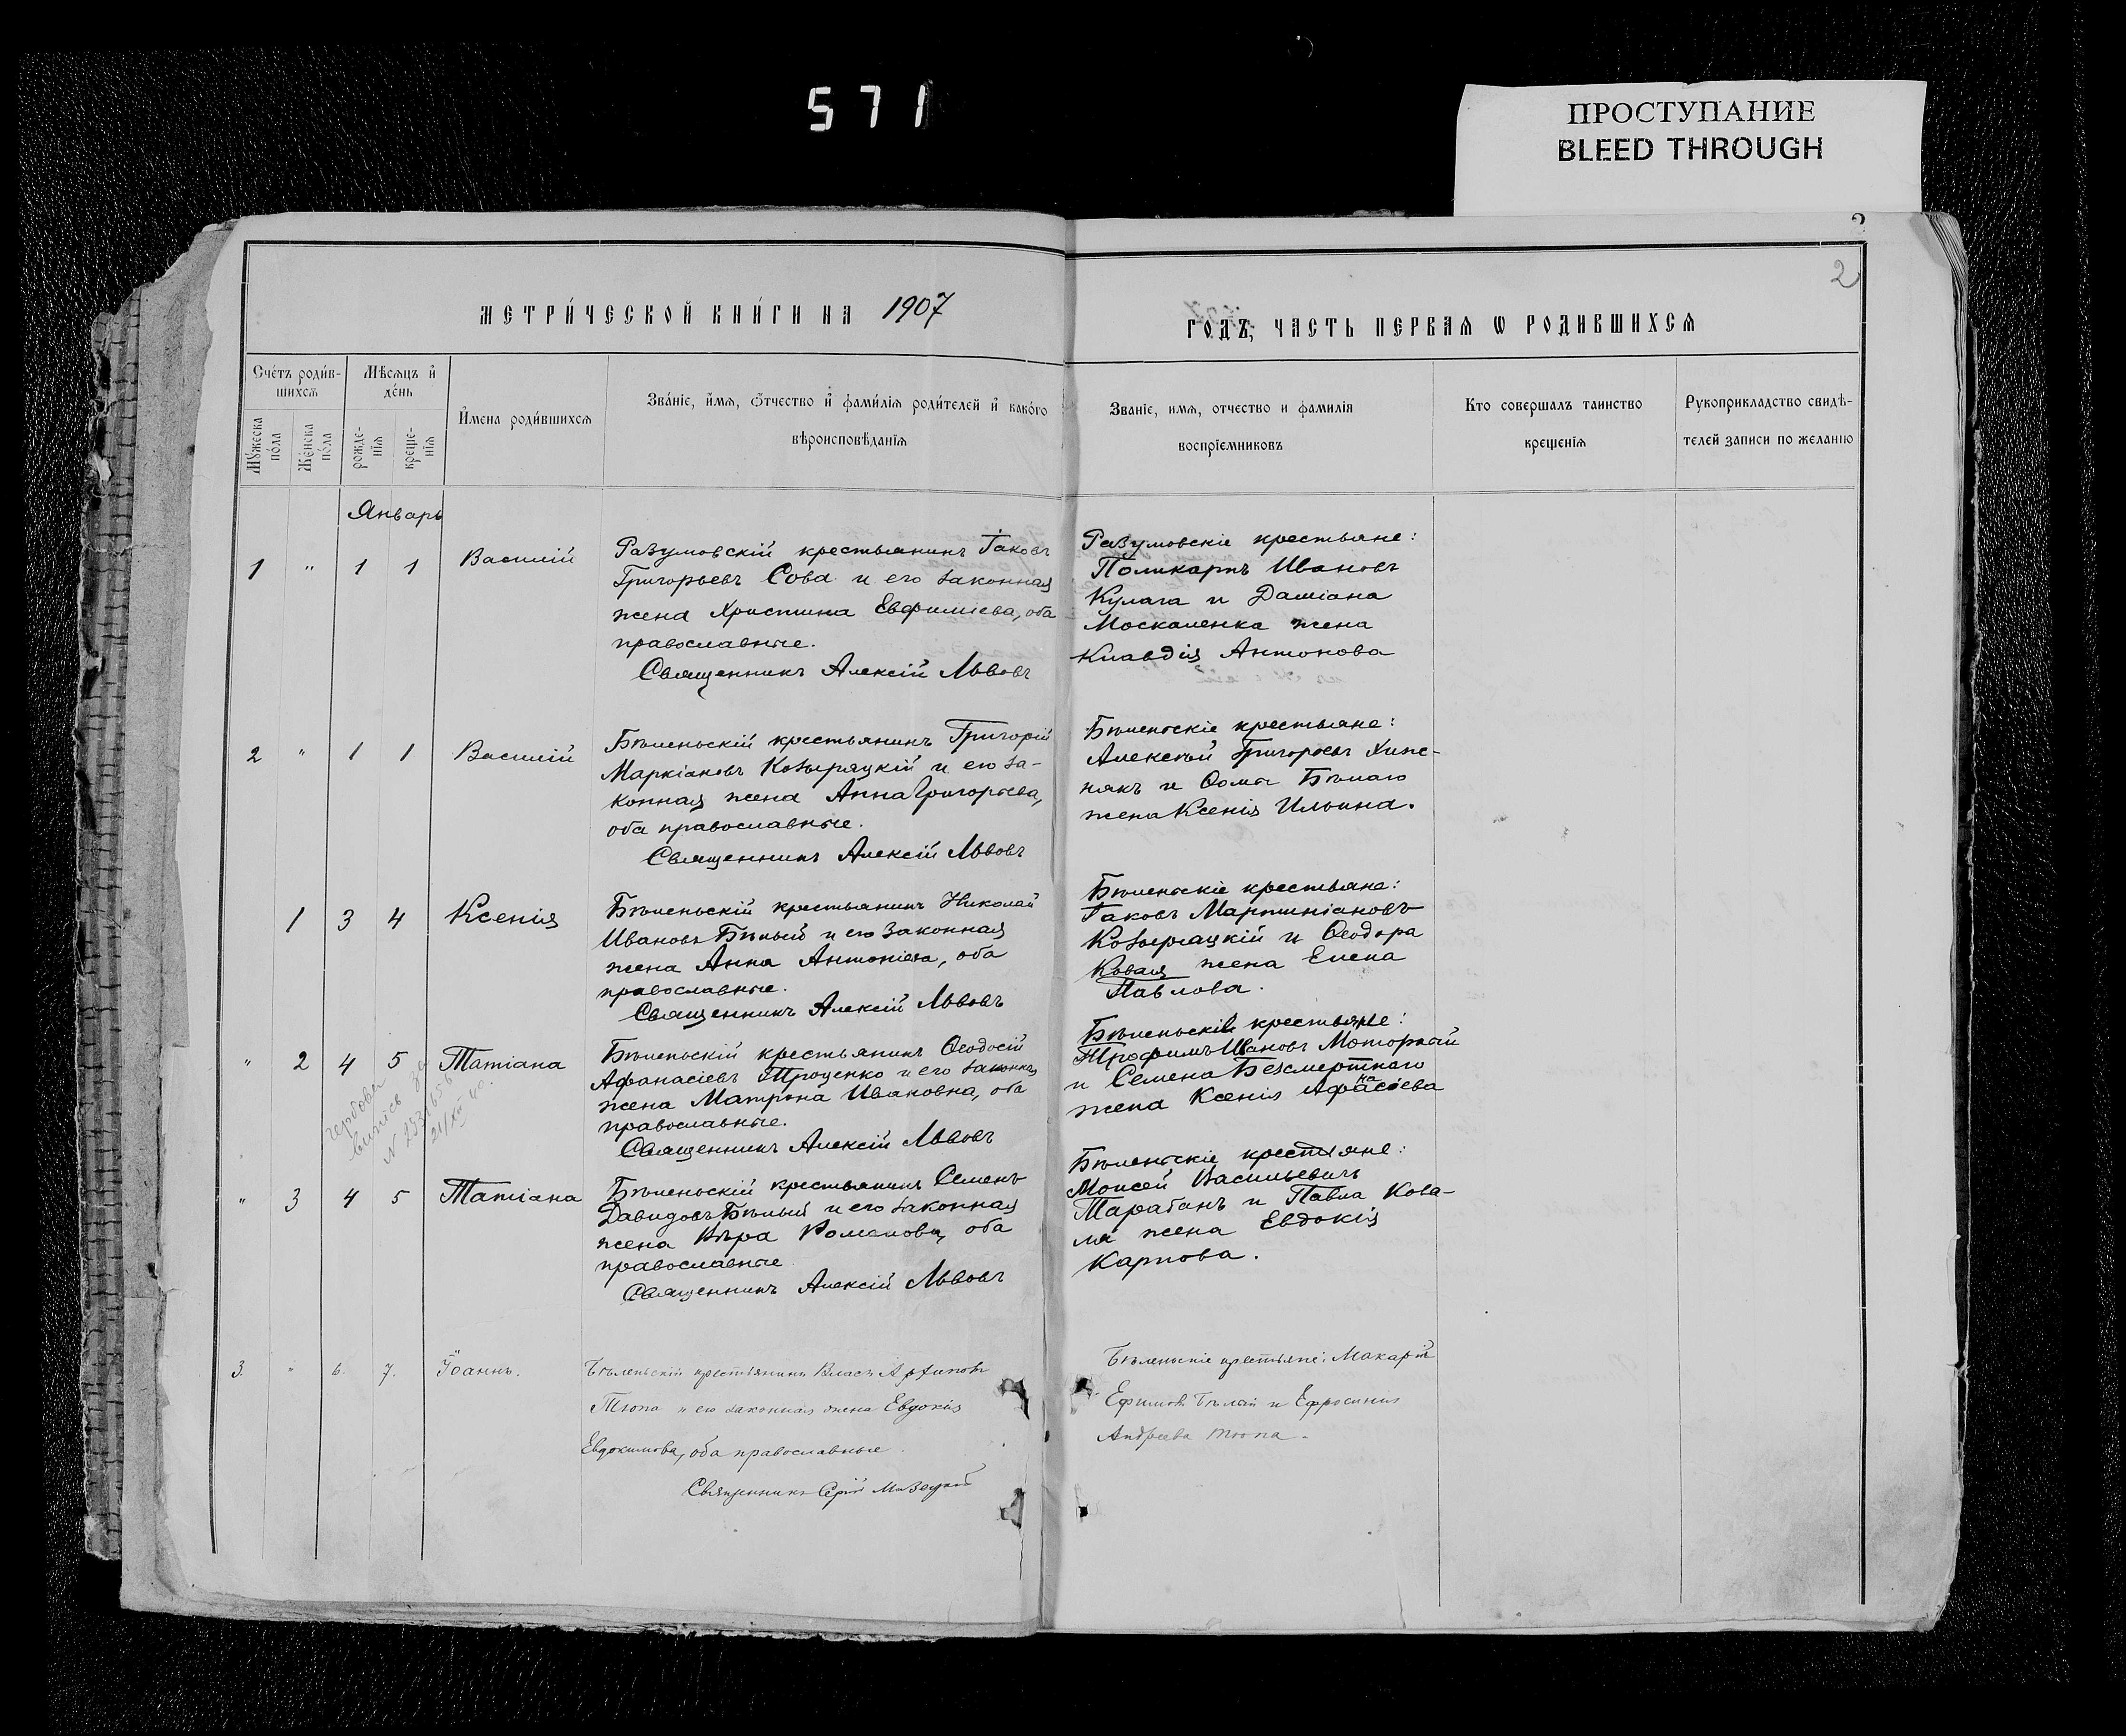 571
ПРОСТУПАНИЕ
BLEED THROUGH
2
2
МЕТРИ́ЧЕСКОЙ КНИ́ГИ НА 1907
ГОДЪ, ЧАСТЬ ПЕРВАѦ Ѡ РОДИВШИХСѦ
Сче́тъ роди́в-
шихсѧ
Мѣсѧцъ и҆
де́нь
Му́жеска
по́ла
Же́нска
по́ла
рожде-
нїѧ
креще-
нїѧ
И҆мена роди́вшихсѧ
Зва́нїе, и҆́мѧ, ѻ҆́тчество и҆ фами́лїѧ роди́телей и҆ како́го
вѣроисповѣ́данїѧ
Званіе, имѧ, отчество и фамиліѧ
воспріемниковъ
Кто совершалъ таинство
крещеніѧ
Рукоприкладство свидѣ-
телей записи по желанію
Январь
1 " 1 1 Василій
Разумовскій крестьянинъ Іаковъ
Григорьевъ Сова и его законная
жена Христина Евфиміева, оба
православные.
Священникъ Алексій Львовъ
Разумовскіе крестьяне:
Поликарпъ Ивановъ
Кулага и Даміана
Москаленка жена
Клавдія Антонова
2 " 1 1 Василій
Бѣленьскій крестьянинъ Григорій
Маркіановъ Козыряцкій и его за-
конная жена Анна Григорьева,
оба православные.
Священникъ Алексій Львовъ
Бѣленьскіе крестьяне:
Алексѣй Григорьевъ Хиж-
някъ и Ѳомы Бѣлаго
жена Ксенія Ильина.
1 3 4 Ксенія
Бѣленьскій крестьянинъ Николай
Ивановъ Бѣлый и его законная
жена Анна Антоніева, оба
православные.
Священникъ Алексій Львовъ
Бѣленьскіе крестьяне:
Іаковъ Мартиніановъ
Козыряцкій и Ѳеодора
Коваля жена Елена
Павлова.
" 2 4 5 Татіана
Бѣленьскій крестьянинъ Ѳеодосій
Афанасіевъ Троценко и его законная
жена Матрона Ивановна, оба
православные.
Священникъ Алексій Львовъ
Бѣленьскіе крестьяне:
Трофимъ Ивановъ Моторный
и Семена Безсмертнаго
жена Ксенія Афанасіева
" 3 4 5 Татіана
Бѣленьскій крестьянинъ Семенъ
Давидовъ Бѣлый и его законная
жена Вѣра Романова, оба
православные
Священникъ Алексій Львовъ
Бѣленьскіе крестьяне:
Моисей Васильевичъ
Тарабанъ и Павла Кова-
ля жена Евдокія
Карпова.
3. " 6. 7. Іоаннъ.
Бѣленьскій крестьянинъ Власъ Архиповъ
Тюпа и его законная жена Евдокія
Евдокимова, оба православные.
Священникъ Сергій
Бѣленьскіе крестьяне: Макарій
Ефимовъ Бѣлай и Ефросинія
Андреева Тюпа.